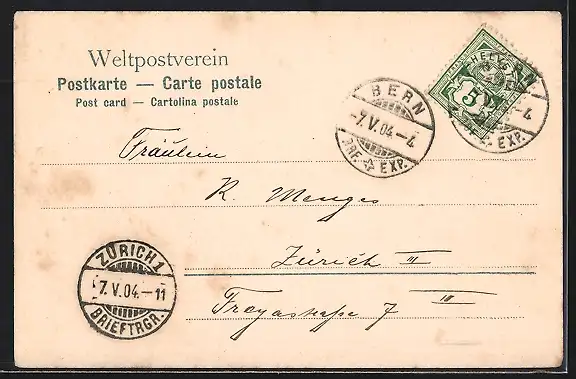 Weltpostverein
Postkarte — Carte postale
Post card — Cartolina postale
HELVETIA
5
BERN
-7.V.04.-4
BRF. EXP.
-4
EXP.
Fräulein
R. Menges
Zürich II
Freyastraße 7 III
ZÜRICH 1
7.V.04.-11
BRIEFTRGR.